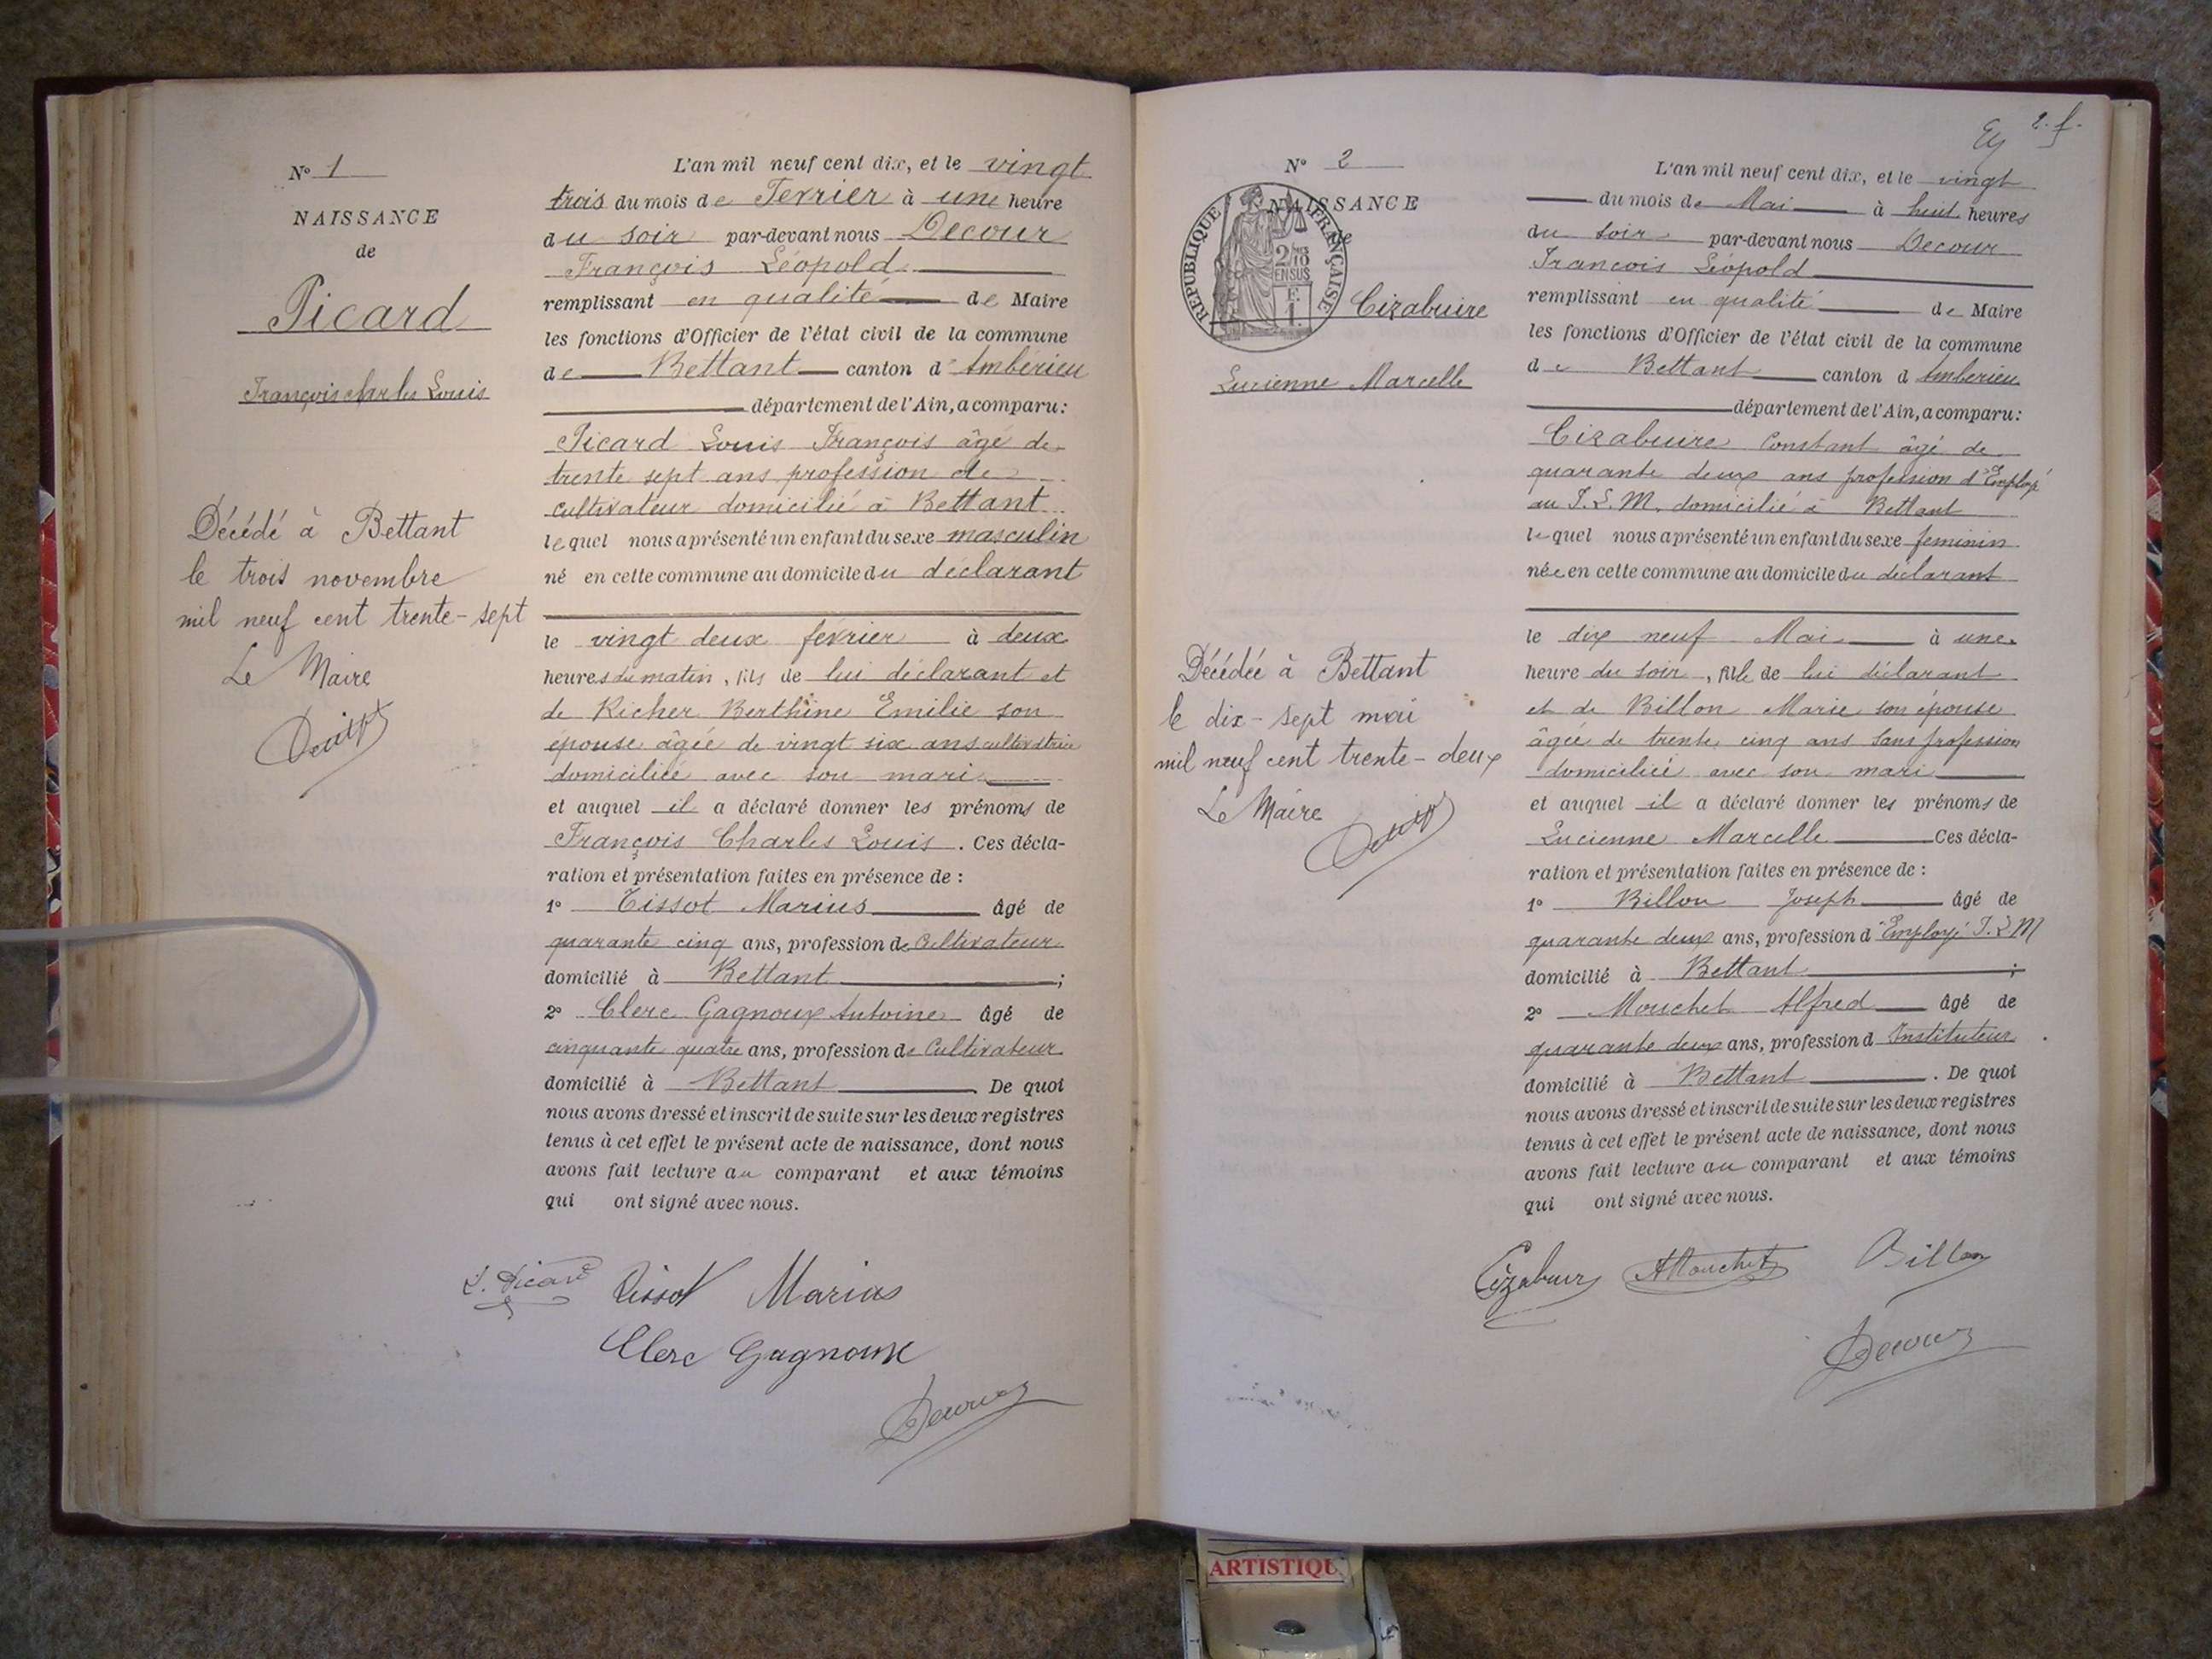 N° 1
NAISSANCE
de
Picard
François Charles Louis
Décédé à Bettant
le trois novembre
mil neuf cent trente-sept
Le Maire
L'an mil neuf cent dix, et le vingt
trois du mois de Fevrier à une heure
du soir par-devant nous Decour
François Léopold
remplissant en qualité de Maire
les fonctions d'Officier de l'état civil de la commune
de Bettant canton d'Ambérieu
département de l'Ain, a comparu:
Picard Louis François âgé de
trente sept ans profession de
cultivateur domicilié à Bettant
lequel nous a présenté un enfant du sexe masculin
né en cette commune au domicile du déclarant
le vingt deux fevrier à deux
heures du matin, fils de lui déclarant et
de Richer Berthine Emilie son
épouse âgée de vingt six ans cultivatrice
domiciliée avec son mari
et auquel il a déclaré donner les prénoms de
François Charles Louis. Ces décla-
ration et présentation faites en présence de :
1° Tissot Marius âgé de
quarante cinq ans, profession de Cultivateur
domicilié à Bettant ;
2° Clerc Gagnoux Antoine âgé de
cinquante quatre ans, profession de Cultivateur
domicilié à Bettant. De quoi
nous avons dressé et inscrit de suite sur les deux registres
tenus à cet effet le présent acte de naissance, dont nous
avons fait lecture au comparant et aux témoins
qui ont signé avec nous.
L. Picard Tissot Marius
Clerc Gagnoux
Decour
2. f.
N° 2
NAISSANCE
de
REPUBLIQUE FRANÇAISE
2/10
EN SUS
F.
1.
Cizabuire
Lucienne Marcelle
Décédée à Bettant
le dix-sept mai
mil neuf cent trente-deux
Le Maire
L'an mil neuf cent dix, et le vingt
du mois de Mai à huit heures
du soir par-devant nous Decour
François Léopold
remplissant en qualité de Maire
les fonctions d'Officier de l'état civil de la commune
de Bettant canton d'Amberieu
département de l'Ain, a comparu:
Cizabuire Constant âgé de
quarante deux ans profession d'Employé
au P.L.M. domicilié à Bettant
lequel nous a présenté un enfant du sexe feminin
née en cette commune au domicile du déclarant
le dix neuf Mai à une
heure du soir, fille de lui déclarant
et de Billon Marie son épouse
âgée de trente cinq ans Sans profession
domiciliée avec son mari
et auquel il a déclaré donner les prénoms de
Lucienne Marcelle Ces décla-
ration et présentation faites en présence de :
1° Billon Joseph âgé de
quarante deux ans, profession d'Employé P.L.M
domicilié à Bettant ;
2° Mouchet Alfred âgé de
quarante deux ans, profession d Instituteur
domicilié à Bettant. De quoi
nous avons dressé et inscrit de suite sur les deux registres
tenus à cet effet le présent acte de naissance, dont nous
avons fait lecture au comparant et aux témoins
qui ont signé avec nous.
Cizabuire AMouchet Billon
Decour
ARTISTIQU